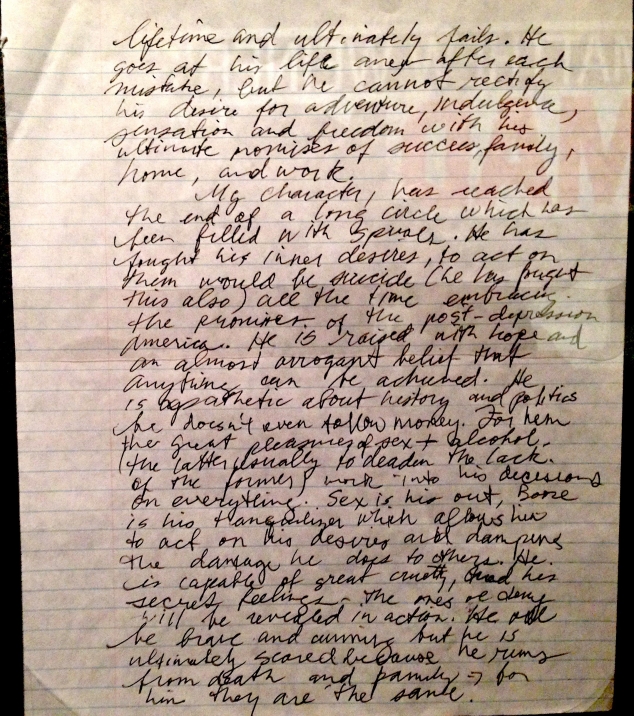 lifetime and ultimately fails. He
goes at his life anew after each
mistake, but he cannot rectify
his desire for adventure, indulgence,
sensation and freedom with his
ultimate promises of success, family,
home, and work.
My character, has reached
the end of a long circle which has
been filled with spirals. He has
fought his inner desires, to act on
them would be suicide (he has fought
this also) all the time embracing
the promises of the post-depression
America. He is raised with hope and
an almost arrogant belief that
anything can be achieved. He
is apathetic about history and politics
he doesn't even follow money. For him
the great pleasures of sex + alcohol,
(the latter usually to deaden the lack
of the former) work into his decisions
on everything. Sex is his out, Booze
is his tranquilizer which allows him
to act on his desires and dampens
the damage he does to others. He
is capable of great cruelty, and his
secret feelings - the ones
will be revealed in action. He will
be brave and cunning but he is
ultimately scared because he runs
from death and family → for
him they are the same.